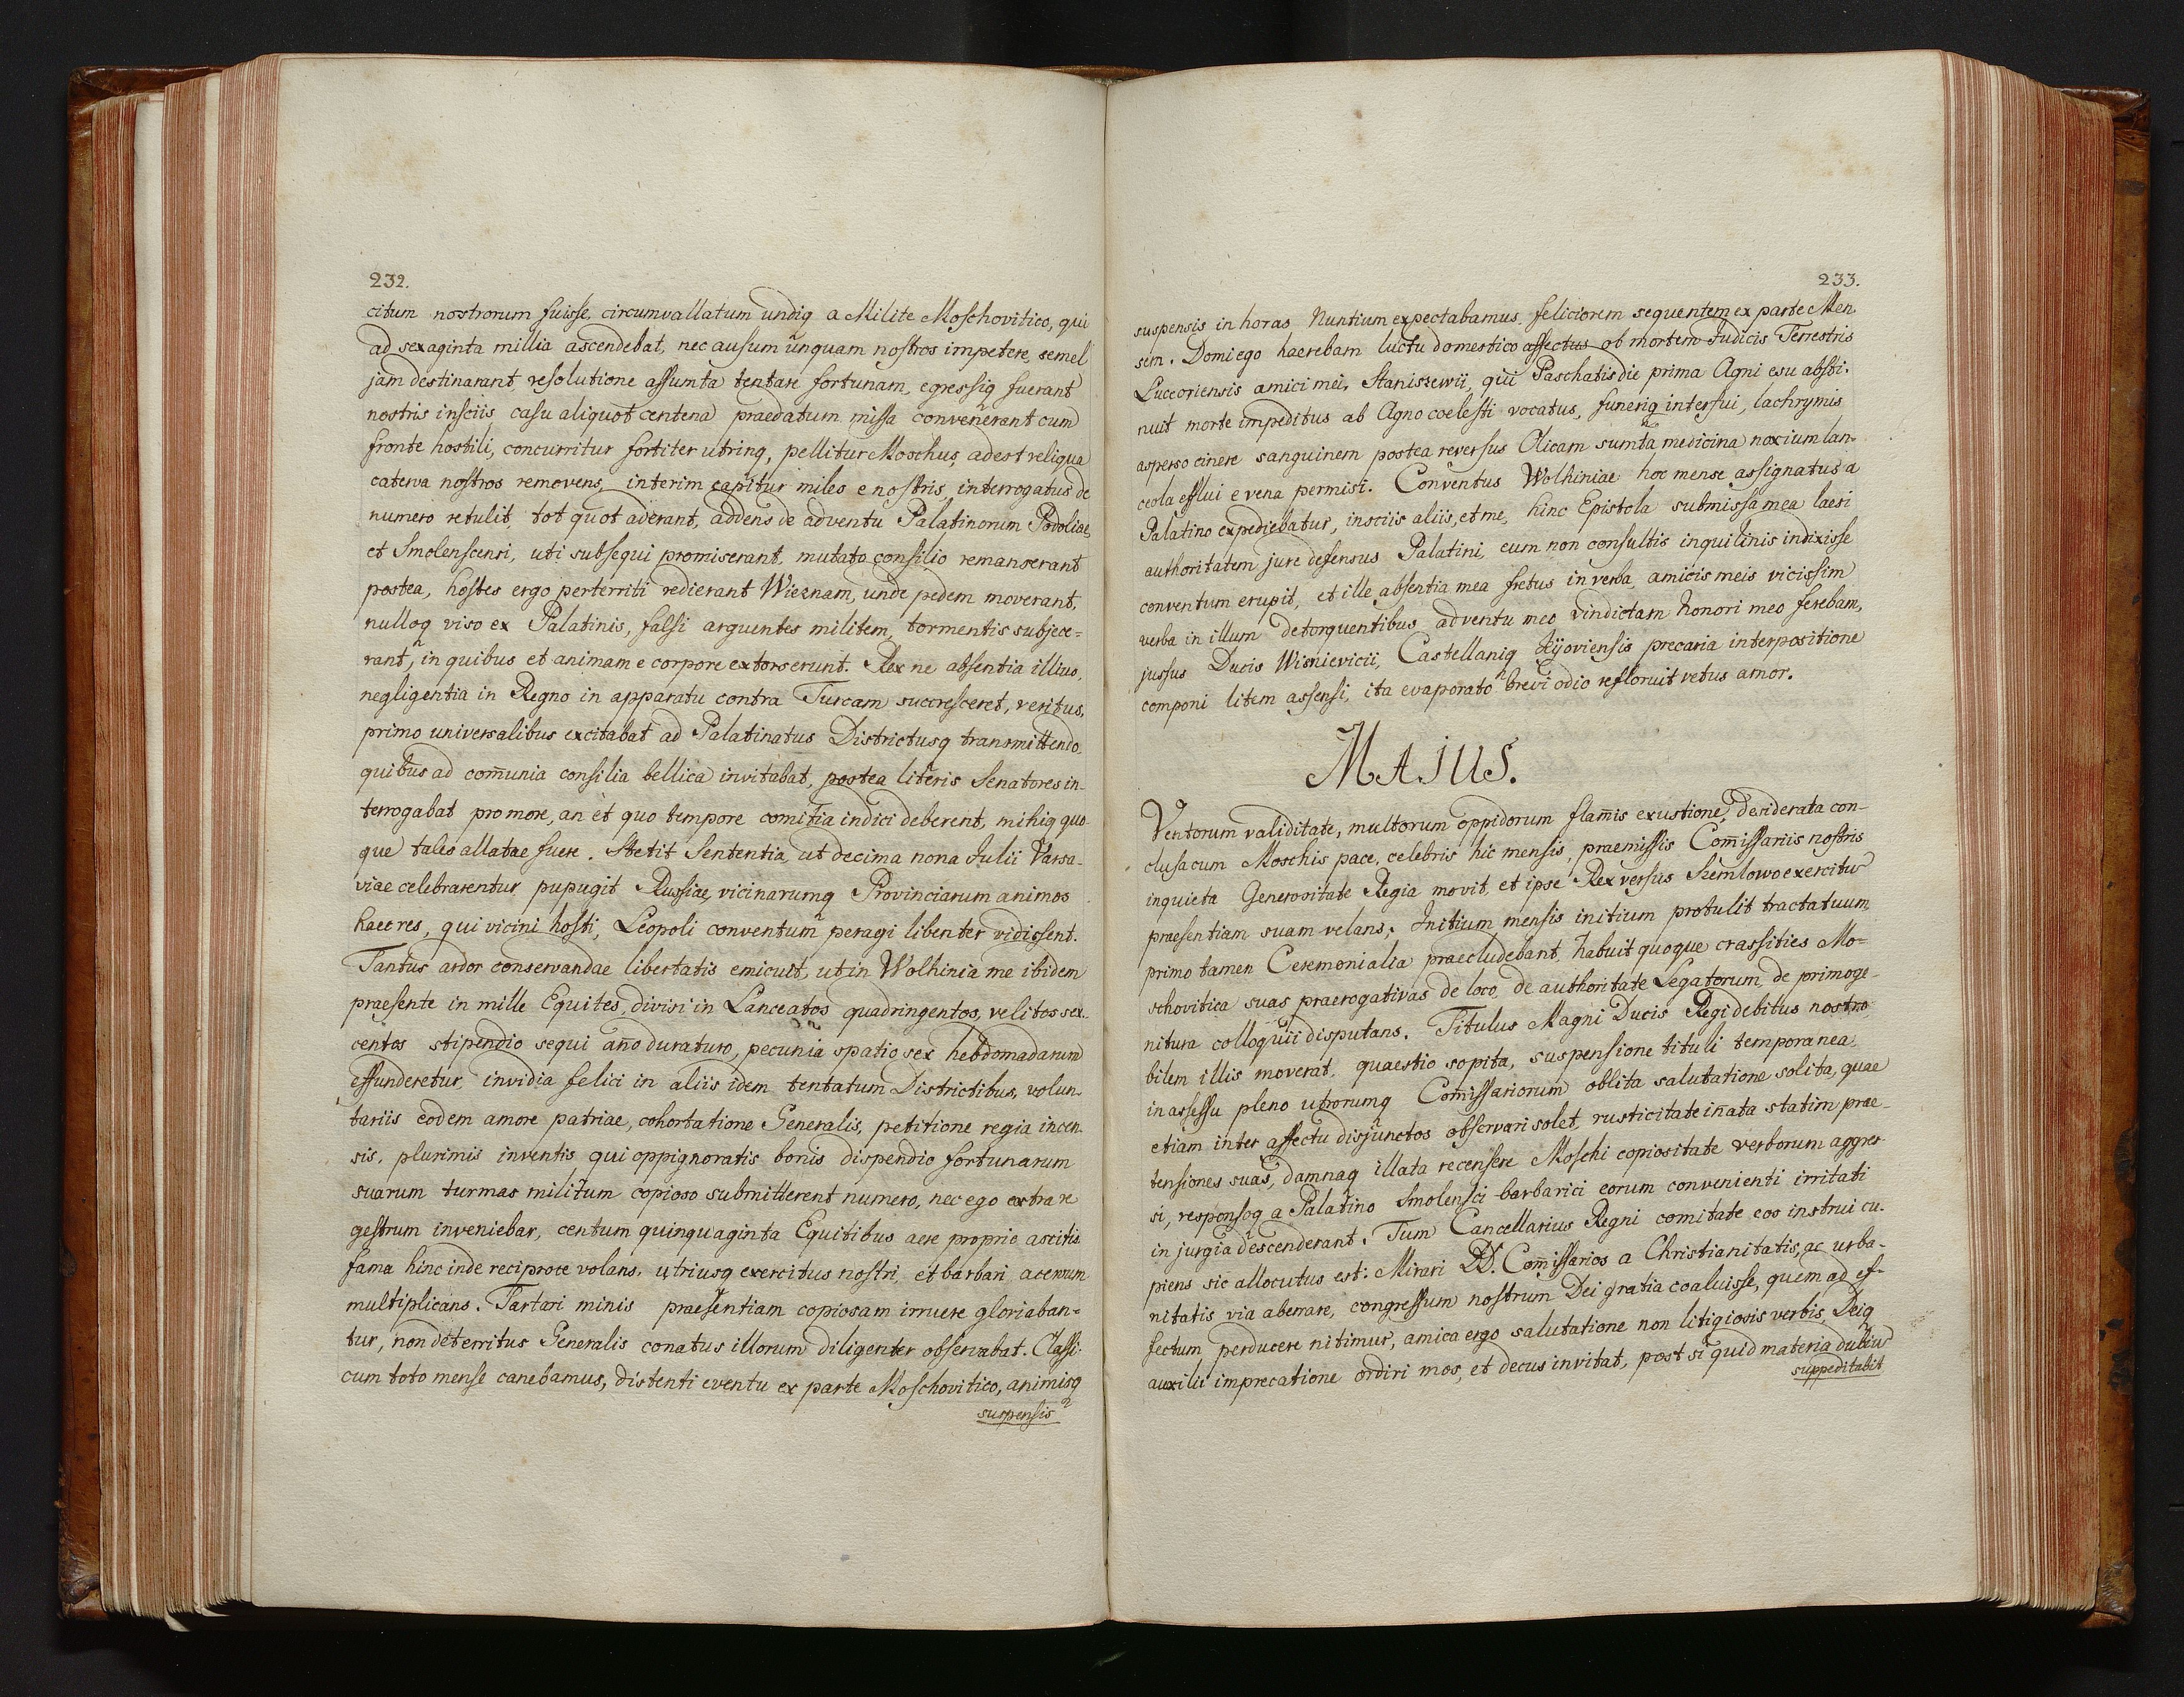 232.
citum nostrorum fuisse, circumvallatum undiq a Milite Moschovitico, qui
ad sexaginta millia ascendebat, nec ausum unquam nostros impetere, semel
jam destinarant, resolutione assumta tentare fortunam, egressiq fuerant
nostris insciis, casu aliquot centena praedatum missa convenerant cum
fronte hostili, concurritur fortiter utrinq, pellitur Moschus, adest reliqua
caterva nostros removens, interim capitur miles e nostris, interrogatus de
numero retulit, tot quot aderant, addens de adventu Palatinorum Podoliae,
et Smolenscensi, uti subsequi promiserant, mutato consilio remanserant
postea, hostes ergo perterriti redierant Wieznam, unde pedem moverant,
nulloq viso ex Palatinis, falsi arguentes militem, tormentis subjece-
rant, in quibus et animam e corpore extorserunt. Rex ne absentia illius,
negligentia in Regno in apparatu contra Turcam succresceret, veritus,
primo universalibus excitabat ad Palatinatus Districtusq transmittendo,
quibus ad com̄unia consilia bellica invitabat, postea literis Senatores in-
terrogabat pro more, an et quo tempore comitia indici deberent, mihiq quo-
que tales allatae fuere. Stetit Sententia, ut decima nona Julii Varsa-
viae celebrarentur, pupugit Russiae, vicinarumq Provinciarum animos
haec res, qui vicini hosti, Leopoli conventum peragi libenter vidissent.
Tantus ardor conservandae libertatis emicuit, ut in Wolhinia me ibidem
praesente in mille Equites, divisi in Lanceatos quadringentos, velitos sex-
centos stipendio sequi an̄o duraturo, pecunia spatio sex hebdomadarum
effunderetur, invidia felici in aliis idem tentatum Districtibus, volun-
tariis eodem amore patriae, cohortatione Generalis, petitione regia incen-
sis, plurimis inventis qui oppignoratis bonis dispendio fortunarum
suarum turmas militum copioso submitterent numero, nec ego extra re
gestrum inveniebar, centum quinquaginta Equitibus aere proprio ascitis.
fama hinc inde reciproce volans, utriusq exercitus nostri, et barbari acervum
multiplicans. Tartari minis praesentiam copiosam irruere gloriaban-
tur, non deterritus Generalis conatus illorum diligenter observabat. Classi-
cum toto mense canebamus, distenti eventu ex parte Moschovitico, animisq
suspensis
233.
suspensis in horas Nuntium expectabamus, feliciorem sequentem ex parte Men
sem. Domi ego haerebam luctu domestico affectus ob mortem Judicis Terrestris
Luceoriensis amici mei, Staniszewii, qui Paschatis die prima Agni esu absti-
nuit morte impeditus ab Agno coelesti vocatus, funeriq interfui, lachrymis
asperso cinere sanguinem postea reversus Olicam sumta medicina noxium lan-
ceola efflui e vena permisi. Conventus Wolhiniae hoc mense assignatus a
Palatino expediebatur, insciis aliis, et me, hinc Epistola submissa mea laesi
authoritatem jure defensus Palatini, eum non consultis inquilinis indixisse
conventum erupit, et ille absentia mea fretus in verba, amicis meis vicissim
verba in illum detorquentibus adventu meo vindictam honori meo ferebam,
jussus Ducis Wisnievicii, Castellaniq Kijoviensis precaria interpositione
componi litem assensi, ita evaporato brevi odio refloruit vetus amor.
MAJUS.
Ventorum validitate, multorum oppidorum flam̄is exustione, desiderata con-
clusa cum Moschis pace, celebris hic mensis, praemissis Com̄issariis nostris
inquieta Generositate Regia movit, et ipse Rex versus Siemlowo exercitus
praesentiam suam velans; Initium mensis initium protulit tractatuum,
primo tamen Ceremonialia praecludebant, habuit quoque crassities Mo-
schovitica suas praerogativas de loco, de authoritate Legatorum, de primoge-
nitura colloquii disputans. Titulus Magni Ducis Regi debitus nostro,
bilem illis moverat, quaestio sopita, suspensione tituli temporanea,
in assessu pleno utrorumq Com̄issariorum oblita salutatione solita, quae
etiam inter affectu disjunctos observari solet, rusticitate in̄ata statim prae-
tensiones suas, damnaq illata recensere Moschi copiositate verborum aggres-
si, responsoq a Palatino Smolensci barbarici eorum convenienti irritati
in jurgia descenderant. Tum Cancellarius Regni comitate eos instrui cu-
piens sic allocutus est: Mirari DD. Com̄issarios a Christianitatis, ac urba-
nitatis via aberrare, congressum nostrum Dei gratia coaluisse, quem ad ef-
fectum perducere nitimur, amica ergo salutatione non litigiosis verbis, Deiq
auxilii imprecatione ordiri mos, et decus invitat, post si quid materia dubius
suppeditabit